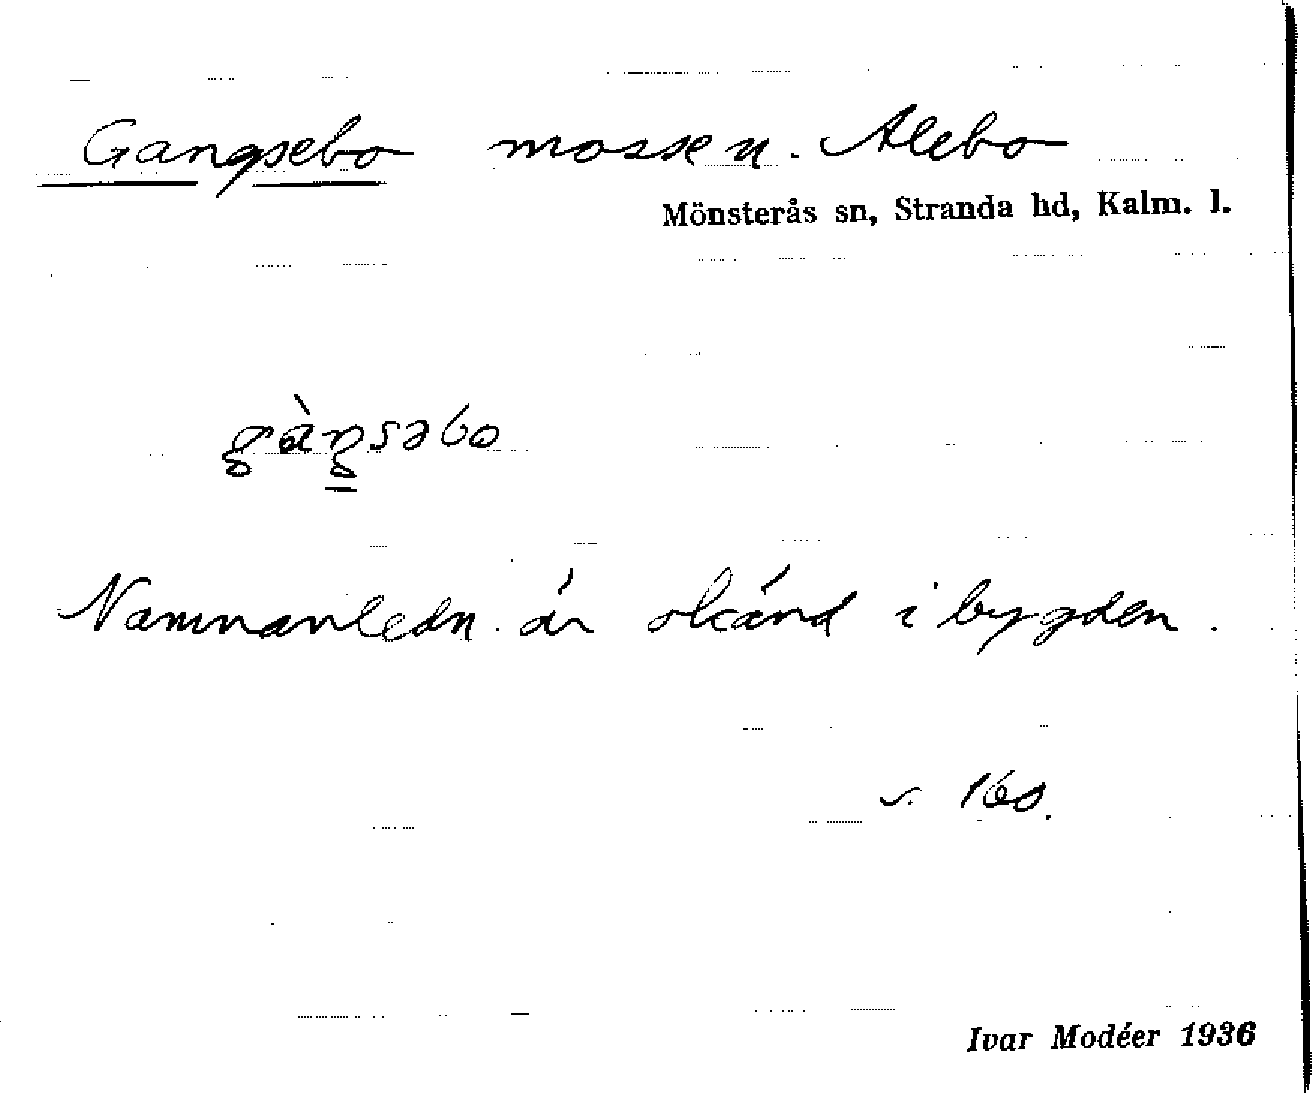 Gangsebo mossen. Alebo
Mönsterås sn, Stranda hd, Kalm. l.
Namnanledn. är okänd i bygden.
s. 160.
Ivar Modéer 1936